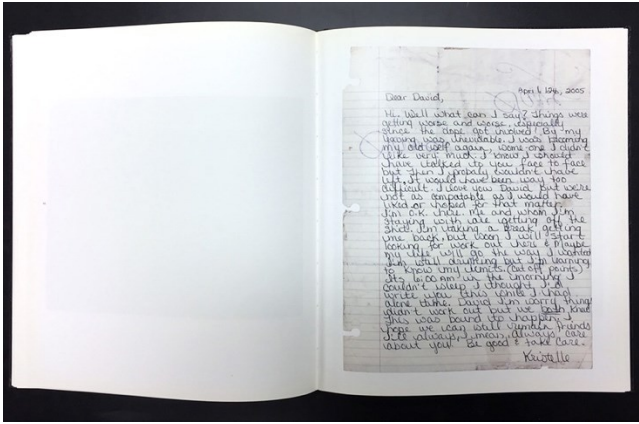 April 12th, 2005
Dear David,
Hi. Well what can I say? Things were
getting worse and worse, especially
since the dope got involved. By my
leaving was inevitable. I was becoming
my old self again, some one I didn't
like very much. I know I should
have talked to you face to face
but then I probaly wouldn't have
left, it would have been way too
difficult. I love you David but we're
not as compatable as I would have
liked or hoped for that matter.
I'm O.K. here. Me and whom I'm
staying with are getting off the
shit. I'm taking a break, getting
me back, but soon I will start
looking for work out here & maybe
my life will go the way I wanted
I'm still drinking but I'm learning
to know my limits. (cut off points)
It's 6:00 AM in the morning I
couldn't sleep I thought I'd
write you this while I had
alone time. David I'm sorry things
didn't work out but we both knew
this was bound to happen. I
hope we can still remain friends
I'll always, I mean always, care
about you. Be good & take care.
Kristelle